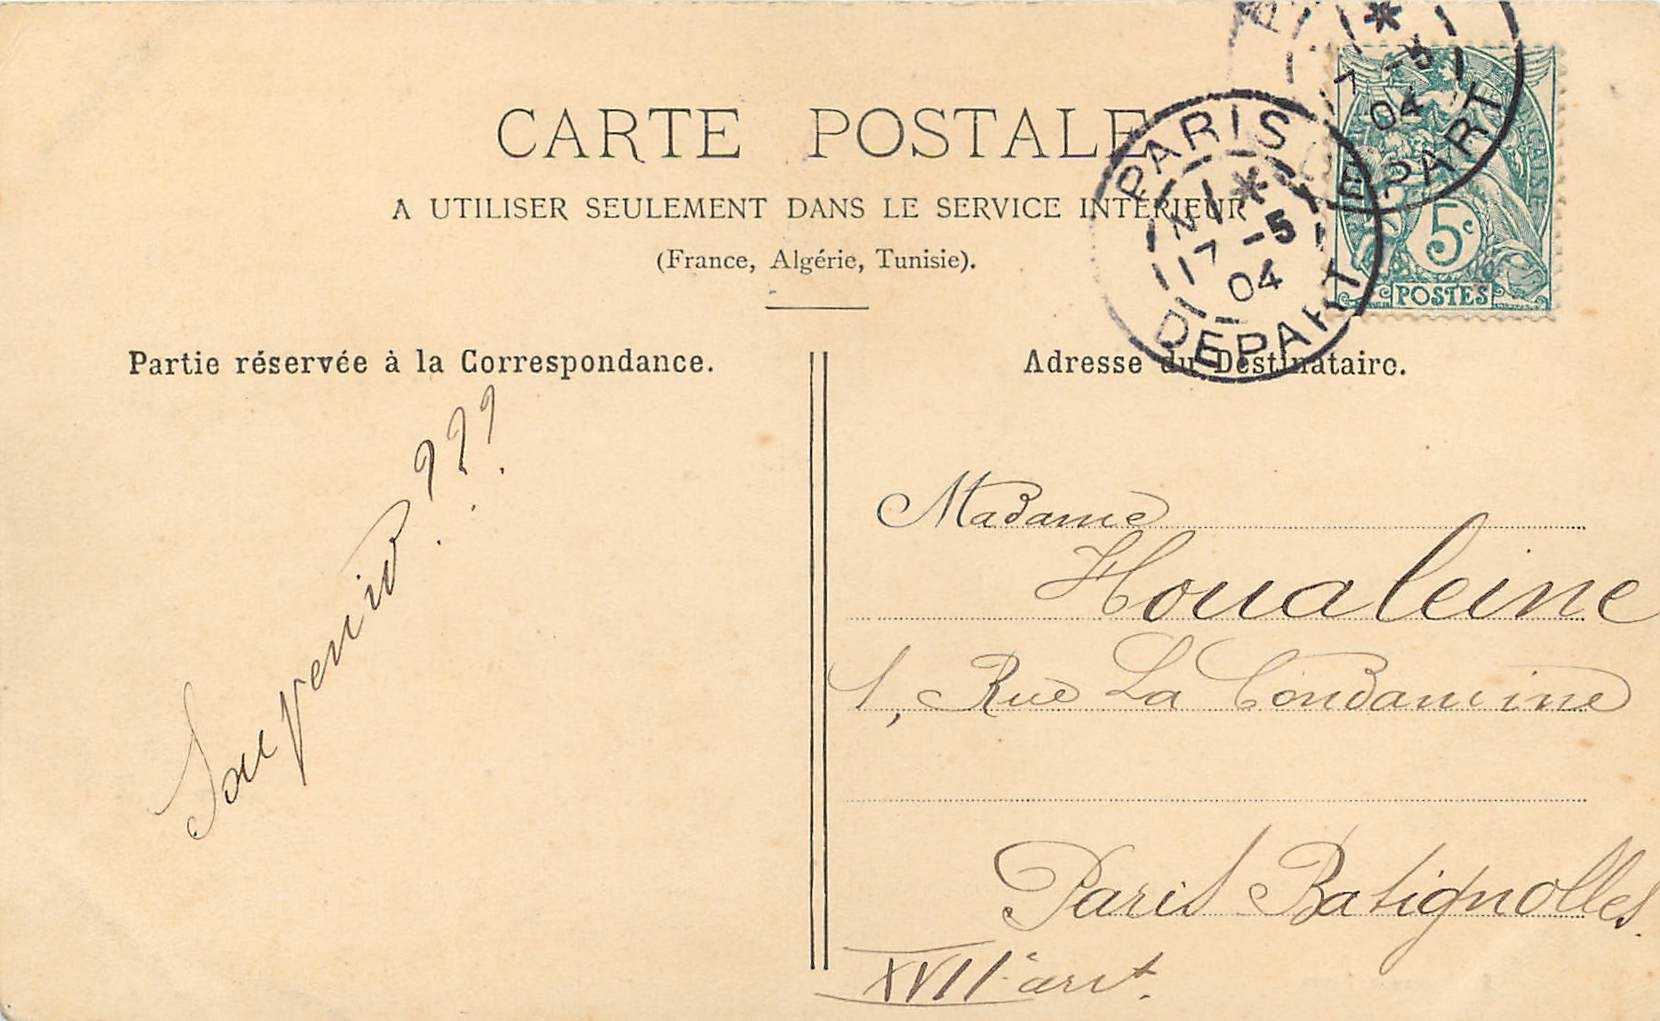 CARTE POSTALE
A UTILISER SEULEMENT DANS LE SERVICE INTÉRIEUR
(France, Algérie, Tunisie).
PARIS
17 -5
04
DEPART
17 -5
04
PART
5c
POSTES
Partie réservée à la Correspondance.
Souvenirs ???
Adresse du Destinataire.
Madame
Houaleine
1, Rue La Condamine
Paris Batignolles.
XVIIe arrt.